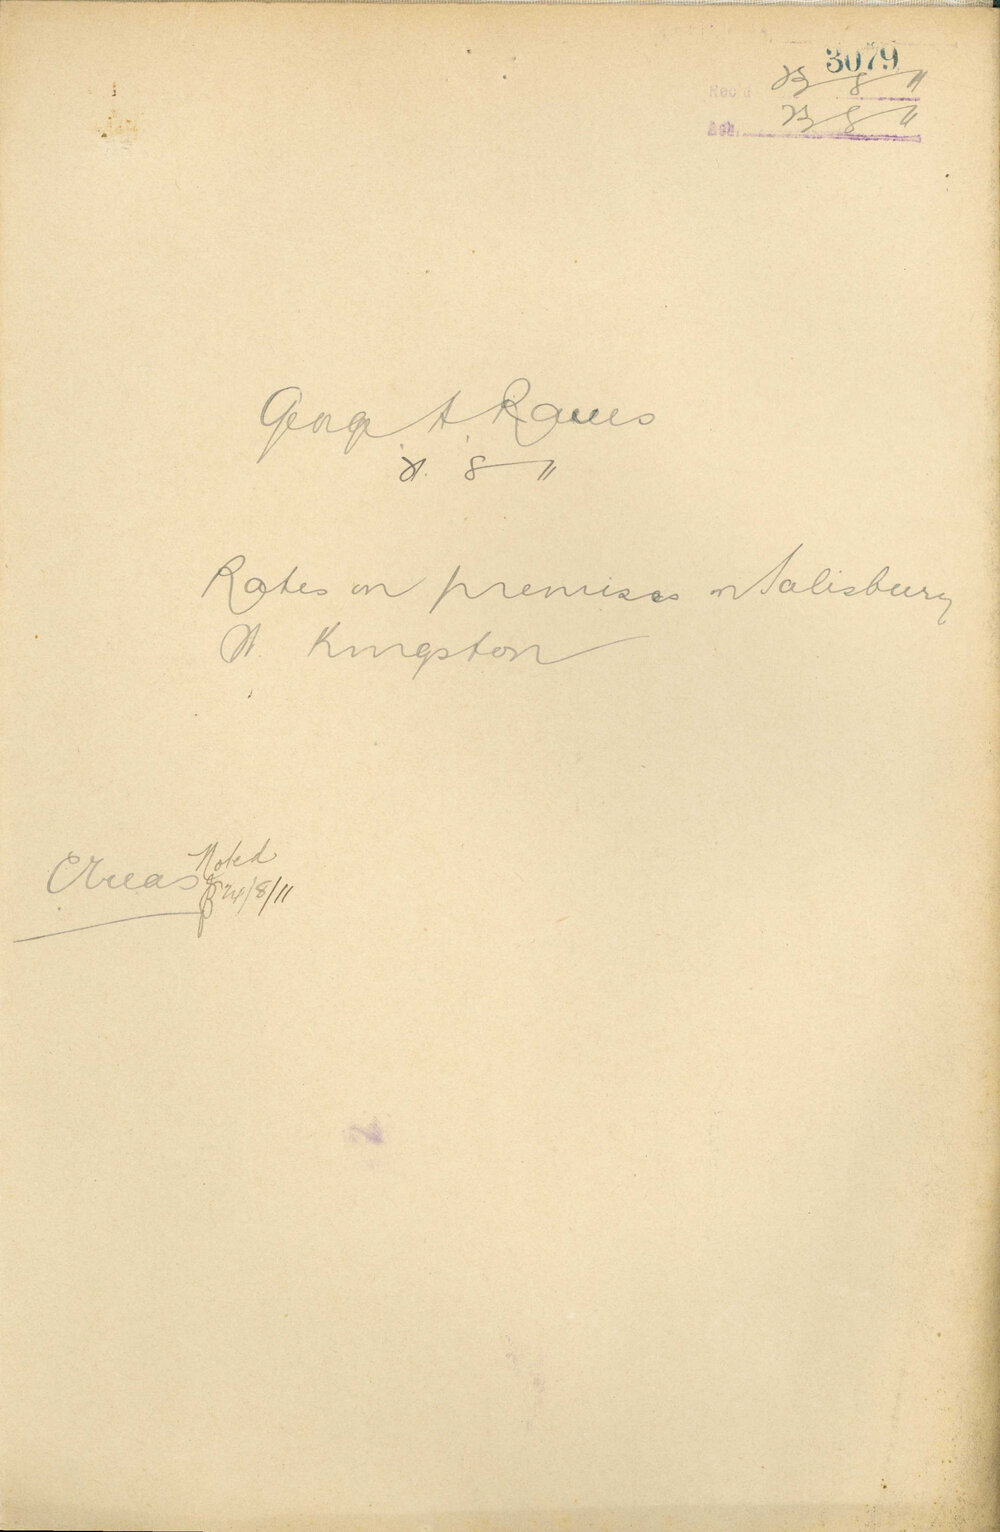 3079
Rec'd 23 8 11
23 8 11
George A. Rames
8 11
Rates on premises on Salisbury
St. Kingston
Noted
Areas 24/8/11